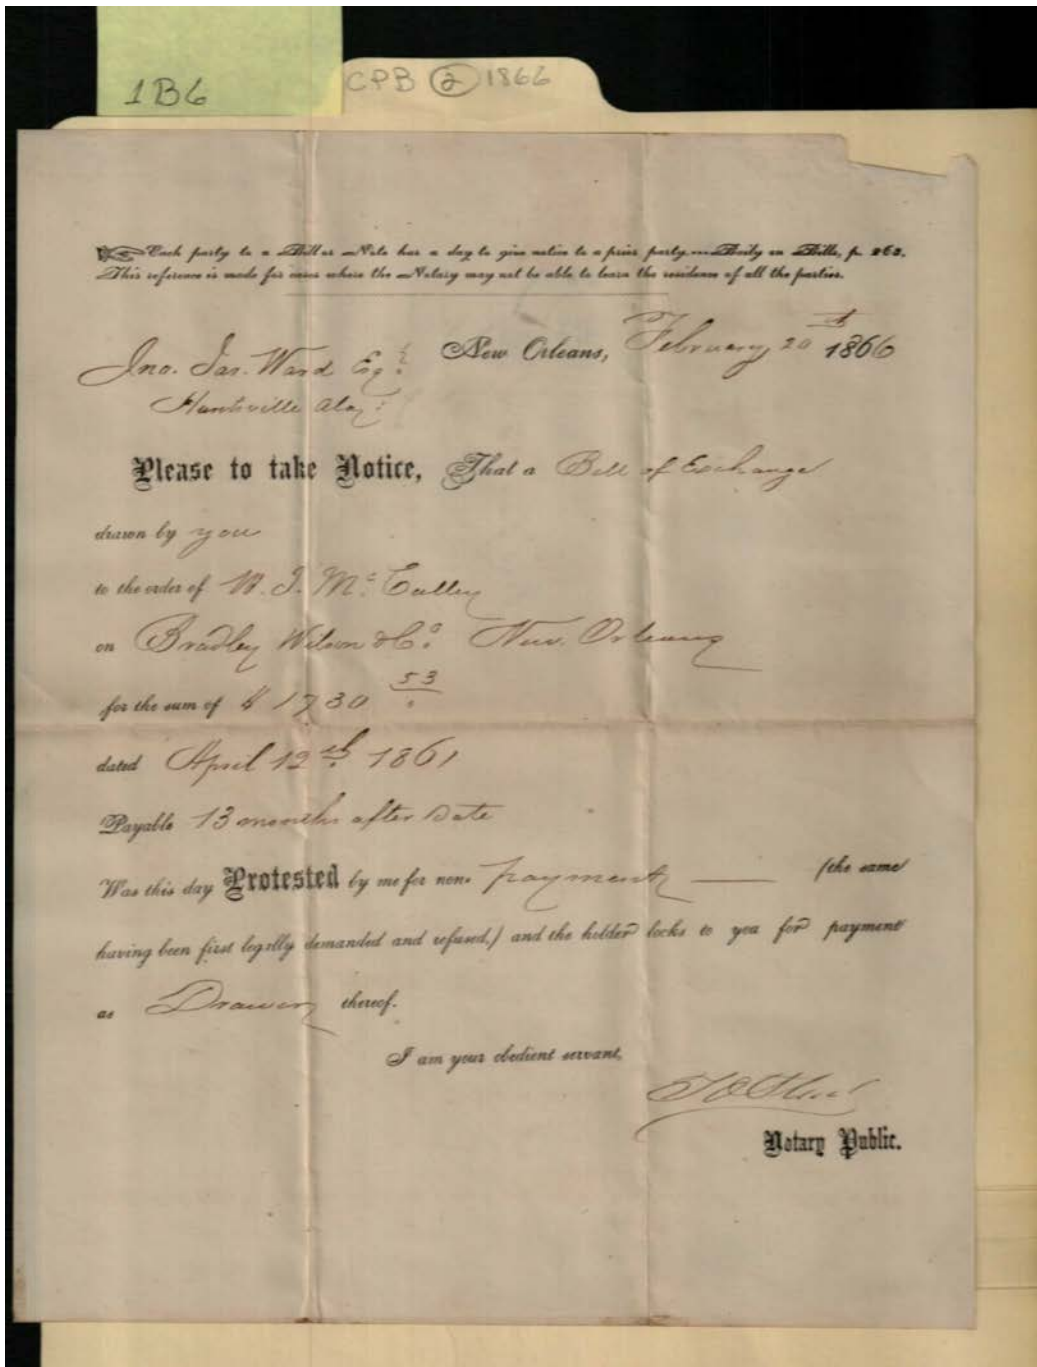 1B6
CPB 2 1866
Each party to a Bill or Note has a day to give notice to a prior party.—Baily on Bills, p. 262.
This reference is made for cases where the Notary may not be able to learn the residence of all the parties.
New Orleans, February 20th 1866
Jno. Jas. Ward Esq
Huntsville Ala
Please to take Notice, That a Bill of Exchange
drawn by you
to the order of W. J. Mc Calley
on Bradley Wilson & Co. New. Orleans
for the sum of $ 1730 53
dated April 12th 1861
Payable 13 months after Date
Was this day Protested by me for non- payment — (the same
having been first legally demanded and refused,) and the holder looks to you for payment
as Drawer thereof.
I am your obedient servant,
Notary Public.